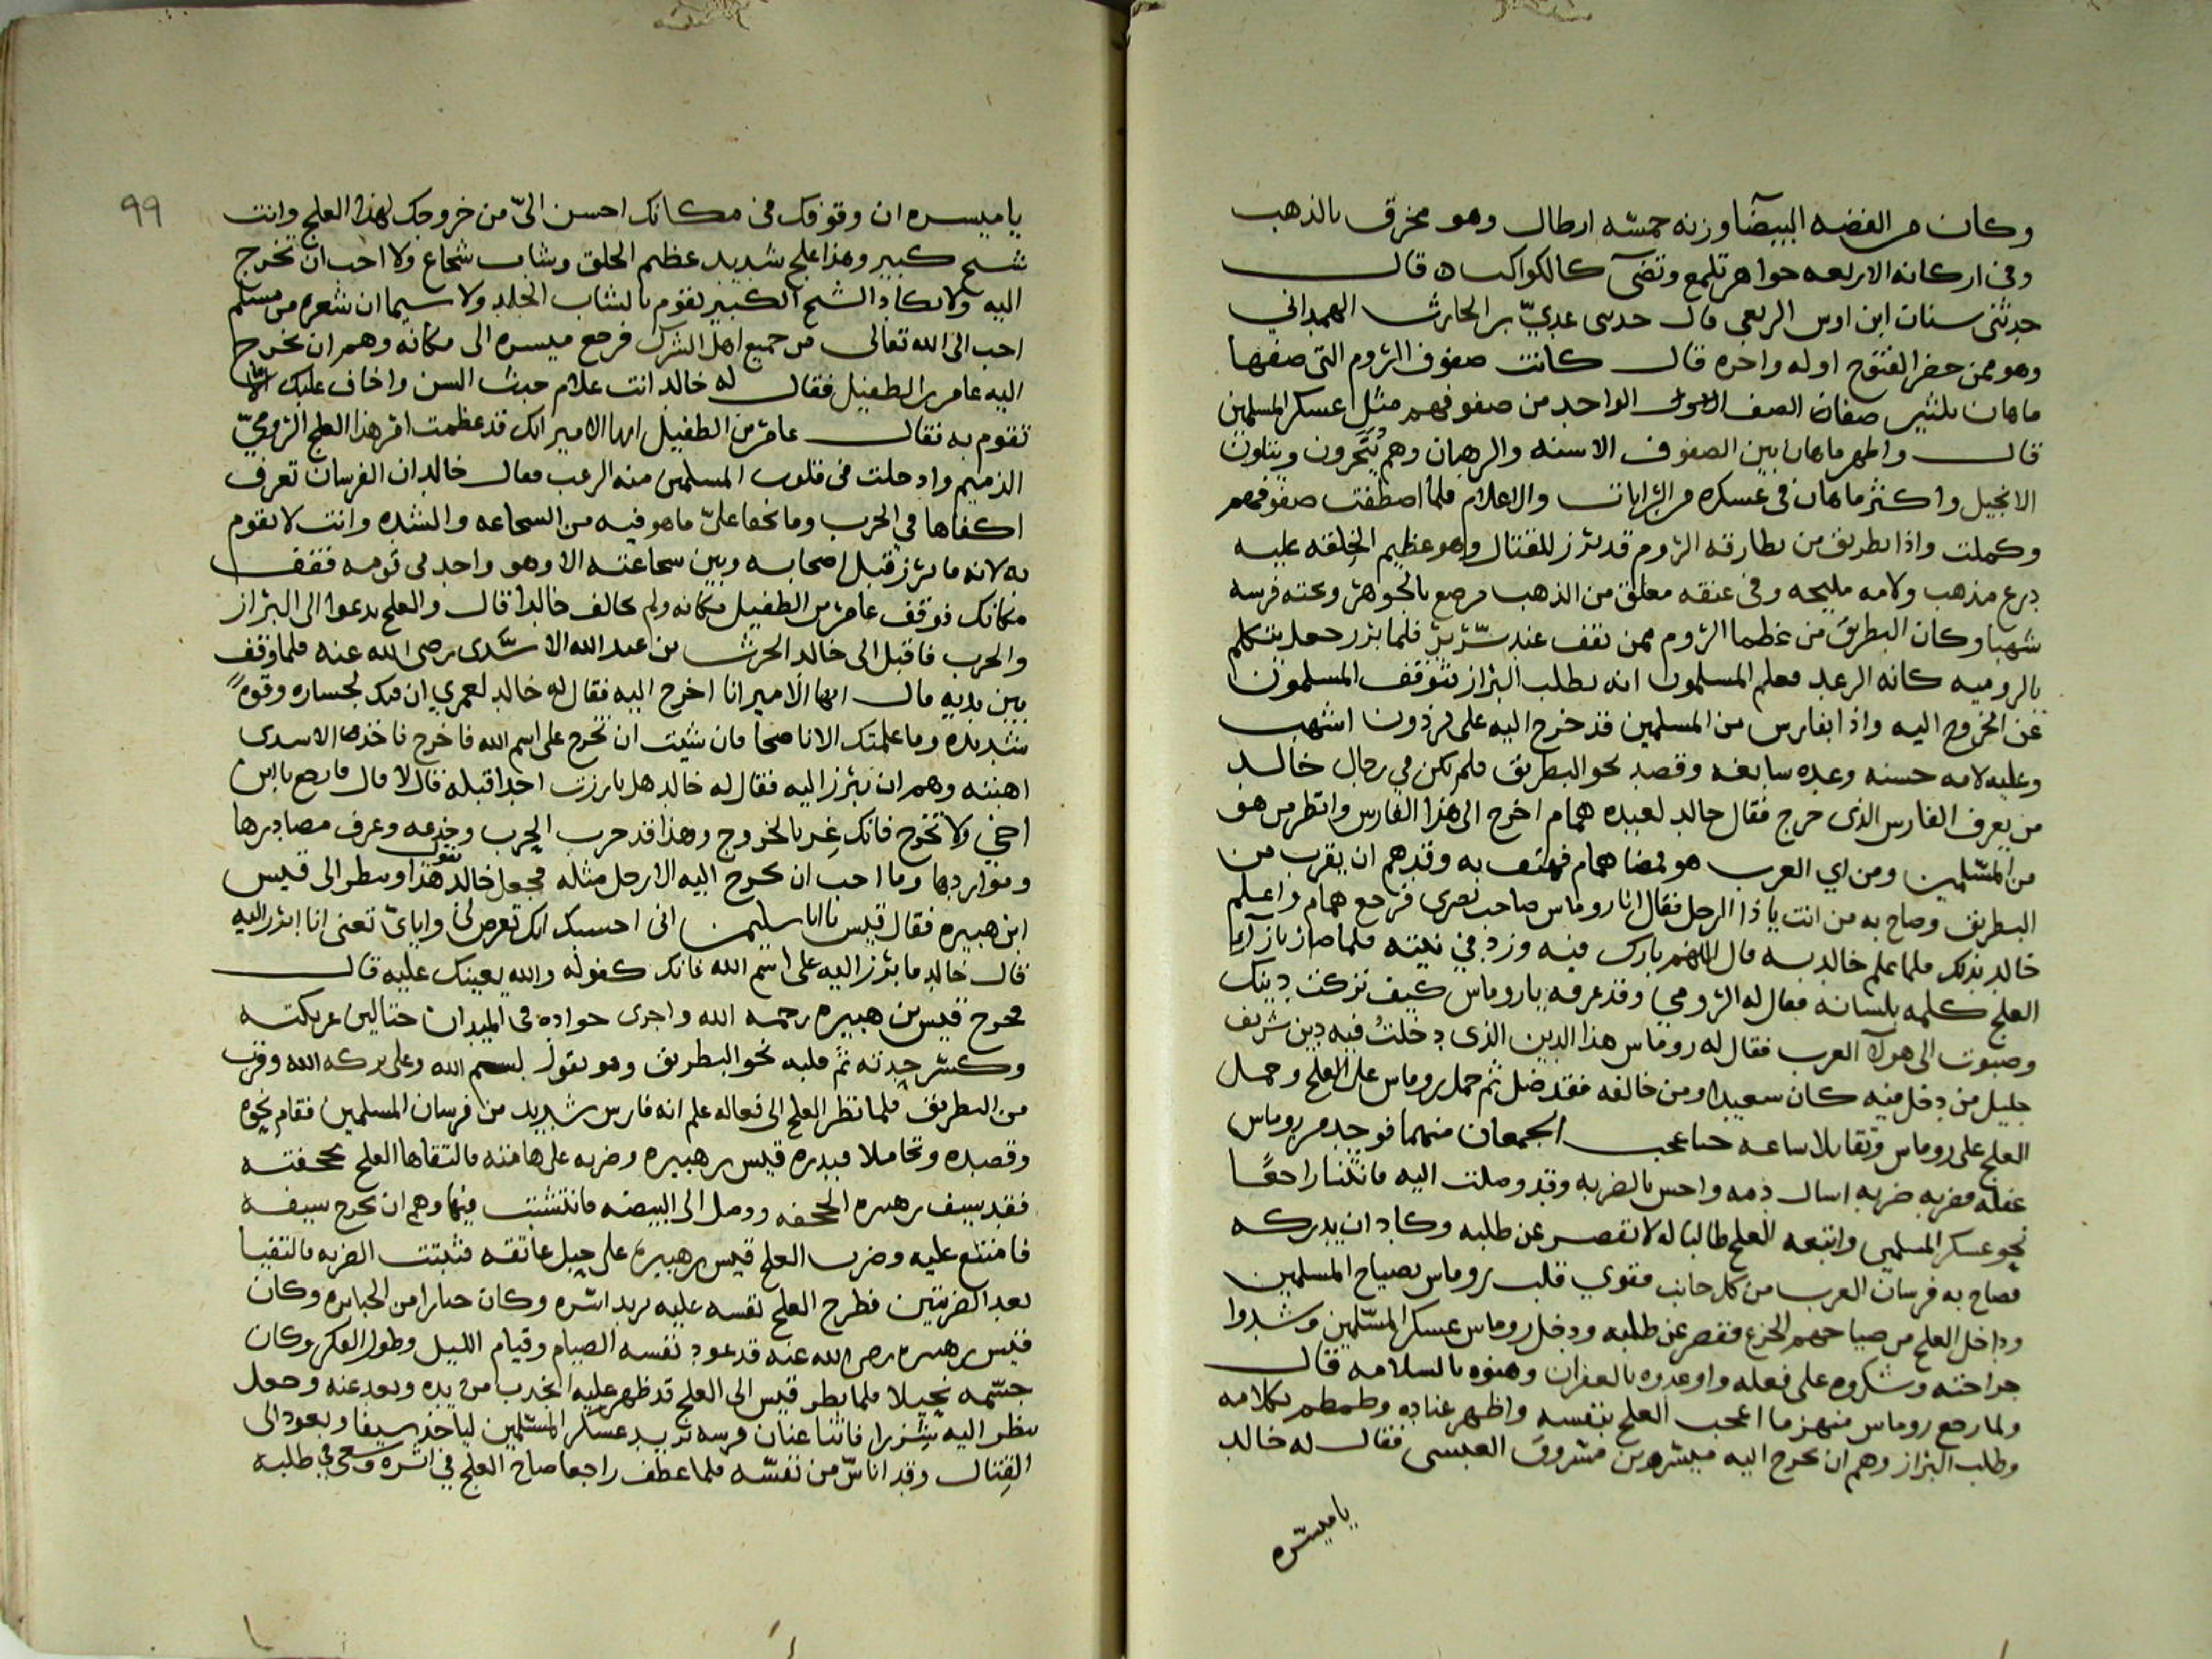 وكان من الفضه البيضا وزنه خمسه ارطال وهو مخرق بالذهب
وفى اركانه الاربعه جواهر تلمع وتضى كالكواكب قال
حدثنى سنان ابن اوس الربعى قال حدثنى عدىّ بن الحارث الهمدانى
وهو ممن حضر الفتوح اوله واخره قال كانت صفوف الروم التى صفها
ماهان ثلثين صفا الصف الواحد من صفوفهم مثل عسكر المسلمين
قال واظهر ماهان بين الصفوف الاسنه والرهبان وهم يبخرون ويتلون
الانجيل واكثر ماهان فى عسكره من الرايات والاعلام فلما اصطفت صفوفهم
وكملت واذا بطريق من بطارقه الروم قد برز للقتال وهو عظيم الخلقه عليه
درع مذهب ولامه مليحه وفى عنقه معلق من الذهب مرصع بالجوهر وتحته فرسه
شهبا وكان البطريق من عظما الروم ممن يقف عند سرير فلما برز جعل يتكلم
بالروميه كانه الرعد فعلم المسلمون انه يطلب البراز فتوقف المسلمون
عن الخروج اليه واذا بفارس من المسلمين قد خرج اليه على برذون اشهب
وعليه لامه حسنه وعده سابغه وقصد نحو البطريق فلم يكن فى رجال خالد
من يعرف الفارس الذى خرج فقال خالد لعبده همام اخرج الى هذا الفارس وانظر من هو
من المسلمين ومن اي العرب هو فمضا همام فهتف به وقد هم ان يقرب من
البطريق وصاح به من انت يا ذا الرجل فقال انا روماس صاحب بصرى فرجع همام واعلم
خالد بذلك فلما علم خالد به قال اللهم بارك فيه وزد فى نيته فلما صار بازآء
العلج كلمه بلسانه فقال له الرومي وقد عرفه يا روماس كيف تركت دينك
وصبوت الى هولآ العرب فقال له روماس هذا الدين الذى دخلتُ فيه دين شريف
جليل من دخل فيه كان سعيدا ومن خالفه فقد ضل ثم حمل روماس على العلج وحمل
العلج على روماس وتقابلا ساعه حتا عجب الجمعان منهما فوجد من روماس
غفله فضربه ضربه اسال دمه واحس بالضربه وقد وصلت اليه فانثنا راجعًا
نحو عسكر المسلمين واتبعه العلج طالبا له لا تقصر عن طلبه وكاد ان يدركه
فصاح به فرسان العرب من كل جانب فقوي قلب روماس بصياح المسلمين
وداخل العلج من صياحهم الجزع فقصر عن طلبه ودخل روماس عسكر المسلمين وشدوا
جراحته وشكروه على فعله واوعدوه بالغفران وهنوه بالسلامه قال
ولما رجع روماس منهزما اعجب العلج بنفسه واظهر عناده وطمطم بكلامه
وطلب البراز وهم ان يخرج اليه ميسره بن مسروق العبسى فقال له خالد
يا ميسره
99
يا ميسره ان وقوفك فى مكانك احسن الىّ من خروجك لهذا العلج وانت
شيخ كبير وهذا علج شديد عظيم الخلق وشاب شجاع ولا احب ان تخرج
اليه ولا يكاد الشيخ الكبير يقوم بالشاب الجلد ولا سيما ان شعره من مسلم
احب الى الله تعالى من جميع اهل الشرك فرجع ميسره الى مكانه وهم ان يخرج
اليه عامر بن الطفيل فقال له خالد انت غلام حدث السن واخاف عليك الا
تقوم به فقال عامر بن الطفيل ايها الامير انك قد عظمت امر هذا العلج الرومىّ
الذميم وادخلت فى قلوب المسلمين منه الرعب فقال خالد ان الفرسان تعرف
اكفاها في الحرب وما يخفا علىّ ما هو فيه من الشجاعه والشده وانت لا تقوم
به لانه ما برز قبل اصحابه وبين شجاعته الا وهو واحد فى قومه فقف
مكانك فوقف عامر بن الطفيل مكانه ولم يخالف خالدا قال والعلج يدعوا الى البراز
والحرب فاقبل الى خالد الحرث بن عبد الله الاسدى رضى الله عنه فلما وقف
بين يديه قال ايها الامير انا اخرج اليه فقال له خالد لعمري ان فيك لجساره وقوهً
شديده وما علمتك الا ناصحا فان شيت ان تخرج على اسم الله فاخرج فاخذها الاسدى
اهبته وهم ان يبرز اليه فقال له خالد هل بارزت احدا قبله قال لا قال فارجع يا ابن
اخي ولا تخرج فانك غِر بالخروج وهذا قد جرب الحرب وخدعه وعرف مصادرها
ومواردها وما احب ان يخرج اليه الا رجل مثله فجعل خالد يقول هذا وينظر الى قيس
ابن هبيره فقال قيس يا ابا سليمن انى احسبك انك تعرض لى واياىّ تعنى انا ابرز اليه
قال خالد فابرز اليه على اسم الله فانك كفوله والله يعينك عليه قال
فخرج قيس بن هبيره رحمه الله واجرى جواده فى الميدان حتا لين عريكته
وكسر حدته ثم قلبه نحو البطريق وهو يقول بسم الله وعلى بركه الله وقرب
من البطريق فلما نظر العلج الى فعاله علم انه فارس شديد من فرسان المسلمين فقام نحوه
وقصده وتحاملا فبدره قيس بن هبيره وضربه على هامته فالتقاها العلج بجحفته
فقد سيف بن هبيره الجحفه ووصل الى البيضه فانتشبت فيها وهم ان يخرج سيفه
فامتنع عليه وضرب العلج قيس بن هبيره على حبل عاتقه فثبتت الضربه فالتقيا
بعد الضربتين فطرح العلج نفسه عليه يريد اسره وكان جبارا من الجبابره وكان
قيس بن هبيره رضى الله عنه قد عود نفسه الصيام وقيام الليل وطول الفكر وكان
جسمه نحيلا فلما نظر قيس الى العلج قد ظهر عليه الخدب من يده وبعد عنه وجعل
ينظر اليه شزرا فانثنا عنان فرسه يريد عسكر المسلمين لياخذ سيفا ويعود الى
القتال وقد اناسّ من نفسه فلما عطف راجعا صاح العلج في اثره وسعى في طلبه